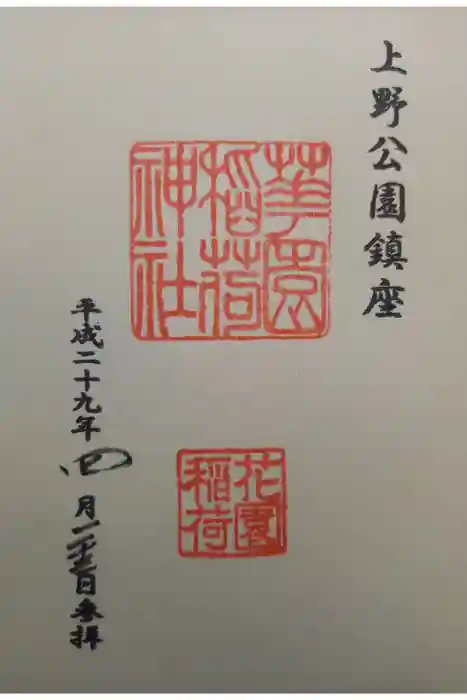 上野公園鎮座
華園
稲荷
神社
花園
稲荷
平成二十九年四月日参拝